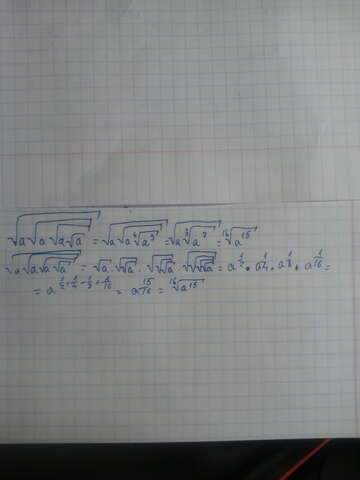 √(a√(a√(a√a))) = √(a√(a ⁴√(a³))) = √(a ⁸√(a⁷)) = ¹⁶√(a¹⁵)
√(a√(a√(a√a))) = √a · √√a · √√√a · √√√√a = a^(1/2) · a^(1/4) · a^(1/8) · a^(1/16) =
= a^(1/2 + 1/4 + 1/8 + 1/16) = a^(15/16) = ¹⁶√(a¹⁵)